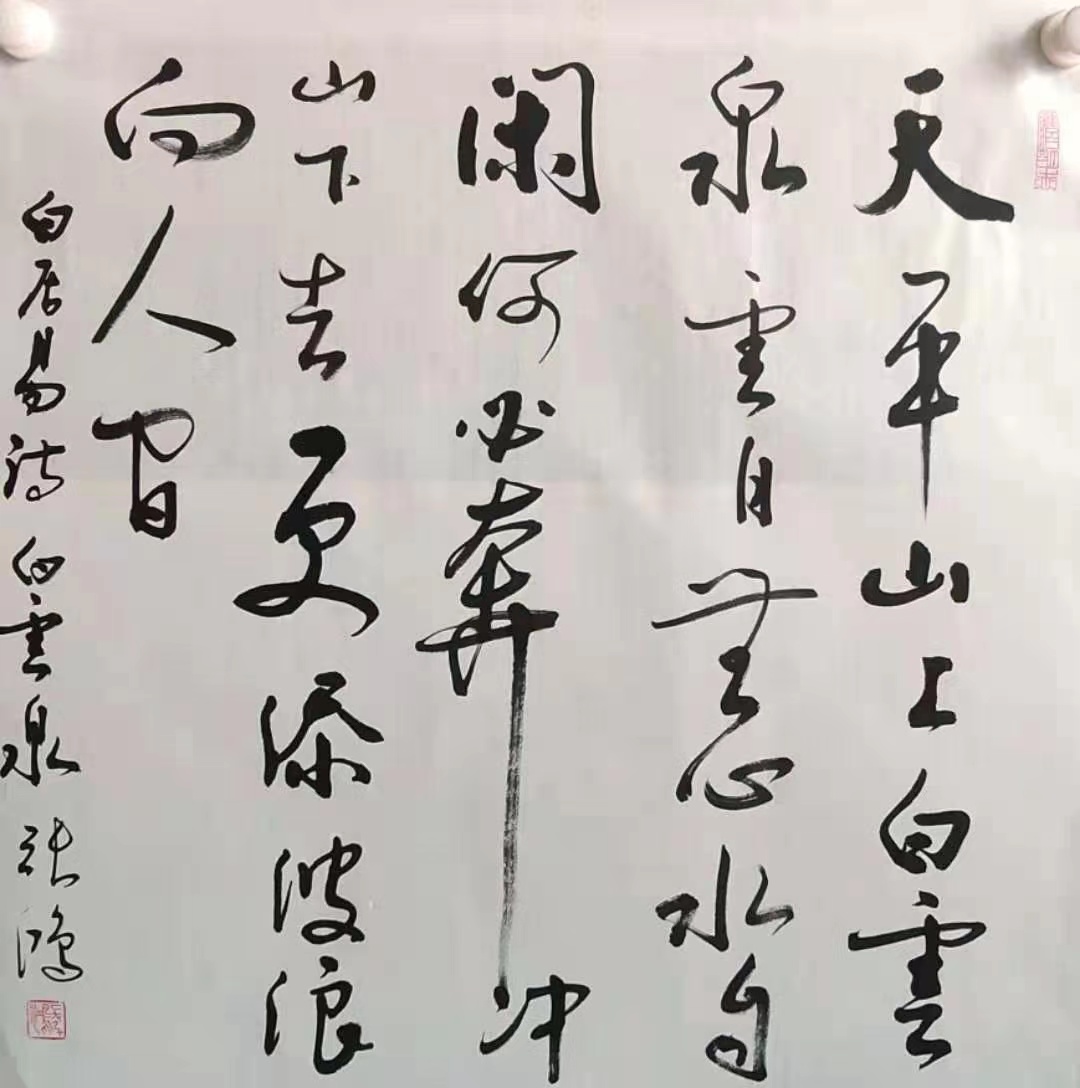 天平山上白雲
泉雲自无心水自
闲何必奔冲
山下去更添波浪
向人间
白居易诗白雲泉 张鸿